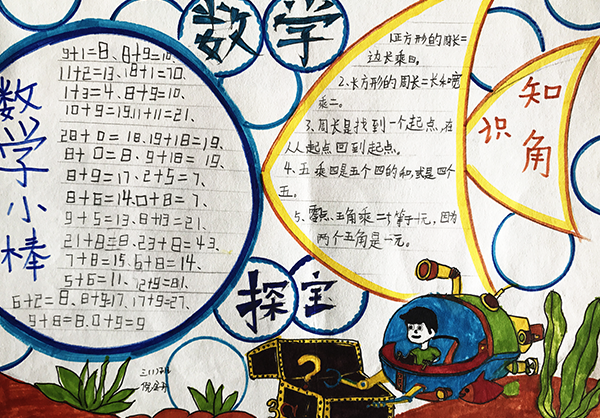 数学
数学小棒
9+1=8、8+9=10、
11+2=13、18+1=70、
1+3=4、8+9=10、
10+9=19、11+11=21、
28+0=18、19+18=19、
8+0=8、9+18=19、
8+9=17、2+5=7、
8+6=14、0+8=7、
9+5=13、8+13=21、
21+8=8、23+8=43、
7+8=15、6+8=14、
5+6=11、72+9=81、
6+2=8、8+9=17、17+9=27、
9+8=8、0+9=9
1、正方形的周长=
边长乘四。
2、长方形的周长=长和宽
乘二。
3、周长是找到一个起点，在
从起点回到起点。
4、五乘四是五个四的和，或是四个
五。
5、五角乘二等于一元，因为
两个五角是一元。
知识角
探宝
三、(1)班
倪